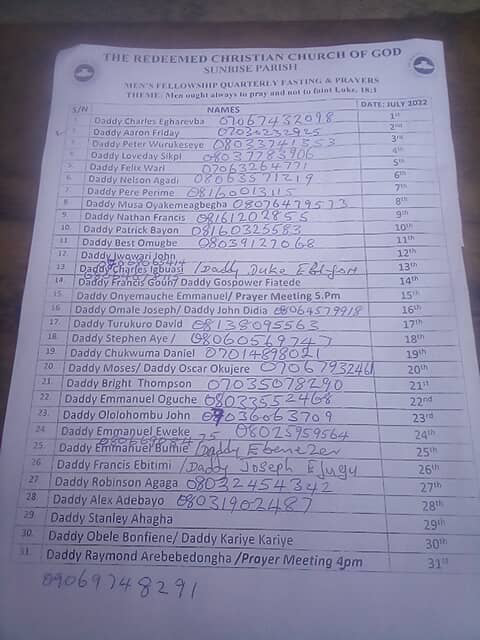 THE REDEEMED CHRISTIAN CHURCH OF GOD
SUNRISE PARISH
MEN'S FELLOWSHIP QUARTERLY FASTING & PRAYERS
THEME: Men ought always to pray and not to faint Luke. 18:1
S/N NAMES DATE: JULY 2022
1. Daddy Charles Egharevba 07067432098 1st
2. Daddy Aaron Friday 07030232925 2nd
3. Daddy Peter Wurukeseye 08033741353 3rd
4. Daddy Loveday Sikpi 08037783906 4th
5. Daddy Felix Wari 07063264771 5th
6. Daddy Nelson Agadi 08063571219 6th
7. Daddy Pere Perime 08160013115 7th
8. Daddy Musa Oyakemeagbegha 08076479573 8th
9. Daddy Nathan Francis 08161202855 9th
10. Daddy Patrick Bayon 08160325583 10th
11. Daddy Best Omugbe 08039127068 11th
12. Daddy Iwowari John 12th
13. Daddy Charles Igbuasi / Daddy Duke 13th
14. Daddy Francis Gouh/ Daddy Gospower Fiatede 14th
15. Daddy Onyemauche Emmanuel/ Prayer Meeting 5.Pm 15th
16. Daddy Omale Joseph/ Daddy John Didia 08064579918 16th
17. Daddy Turukuro David 08138095563 17th
18. Daddy Stephen Aye / 08060569747 18th
19. Daddy Chukwuma Daniel 07014898021 19th
20. Daddy Moses/ Daddy Oscar Okujere 07067932461 20th
21. Daddy Bright Thompson 07035078290 21st
22. Daddy Emmanuel Oguche 08033552468 22nd
23. Daddy Ololohombu John 07036063709 23rd
24. Daddy Emmanuel Eweke 08025959564 24th
25. Daddy Emmanuel Bumie / Daddy Ebenezer 25th
26. Daddy Francis Ebitimi / Daddy Joseph 26th
27. Daddy Robinson Agaga 08032454342 27th
28. Daddy Alex Adebayo 08031902487 28th
29. Daddy Stanley Ahagha 29th
30. Daddy Obele Bonfiene/ Daddy Kariye Kariye 30th
31. Daddy Raymond Arebebedongha /Prayer Meeting 4pm 31st
09069748291